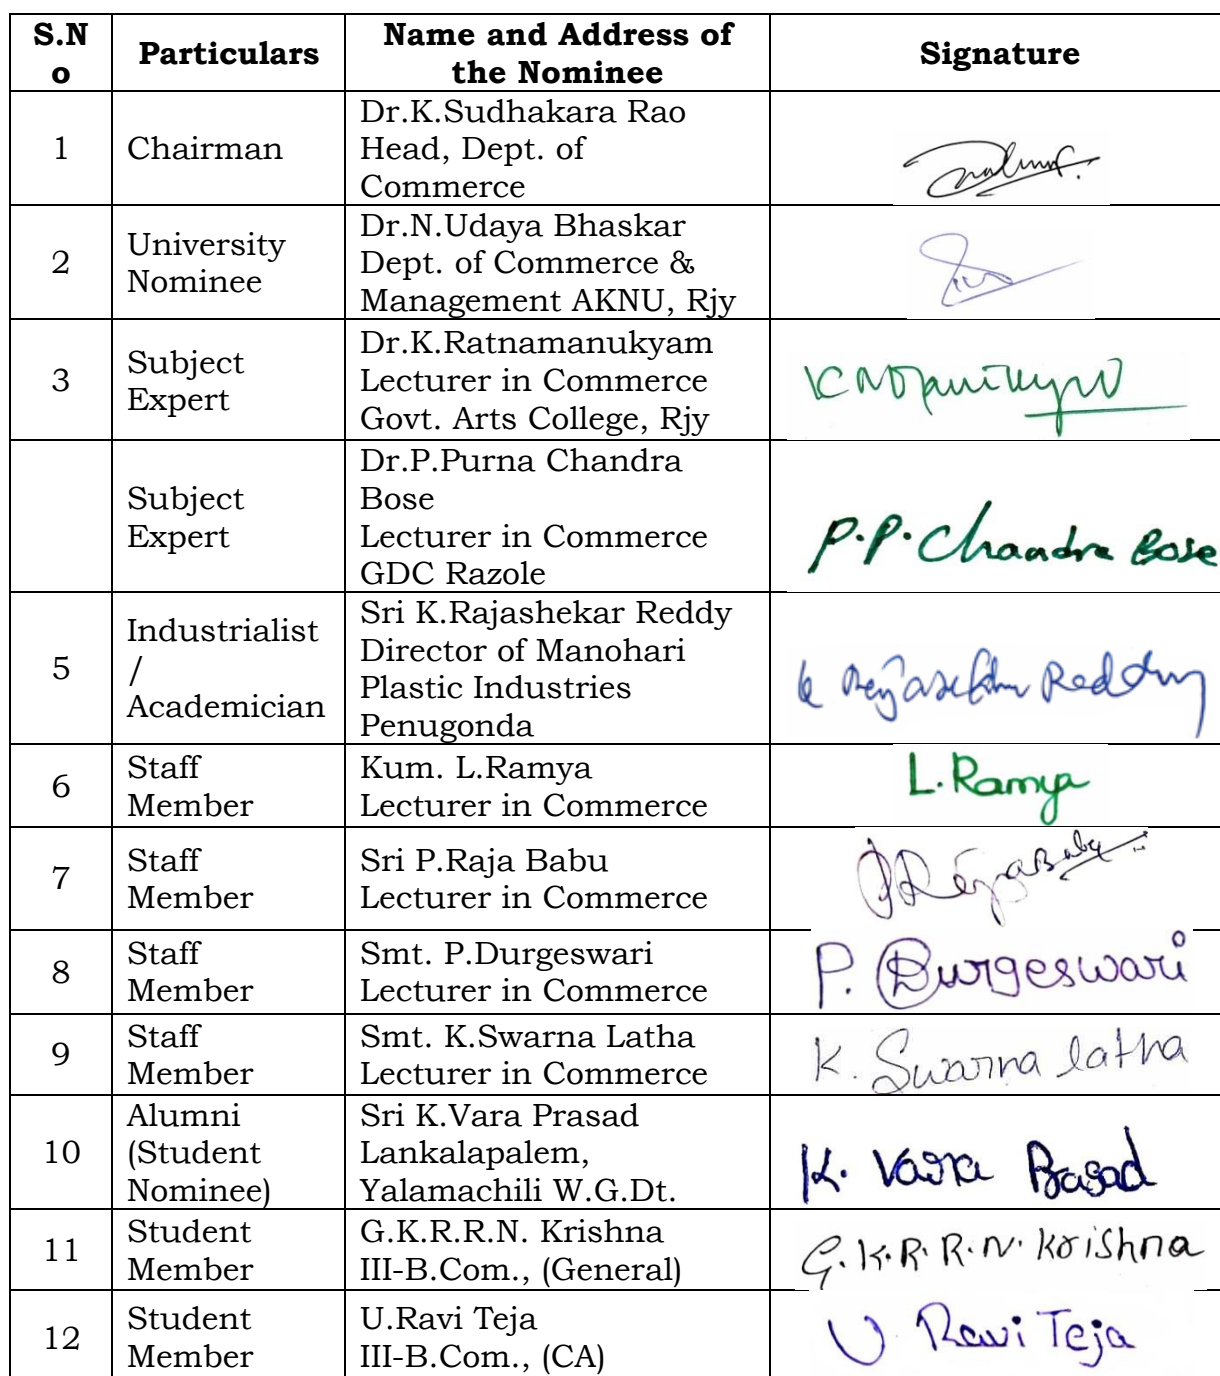 S.N
o
Particulars
Name and Address of
the Nominee
Signature
1
Chairman
Dr.K.Sudhakara Rao
Head, Dept. of
Commerce
2
University
Nominee
Dr.N.Udaya Bhaskar
Dept. of Commerce &
Management AKNU, Rjy
3
Subject
Expert
Dr.K.Ratnamanukyam
Lecturer in Commerce
Govt. Arts College, Rjy
Subject
Expert
Dr.P.Purna Chandra
Bose
Lecturer in Commerce
GDC Razole
P.P. Chandra Bose
5
Industrialist
/
Academician
Sri K.Rajashekar Reddy
Director of Manohari
Plastic Industries
Penugonda
Reddy
6
Staff
Member
Kum. L.Ramya
Lecturer in Commerce
L. Ramya
7
Staff
Member
Sri P.Raja Babu
Lecturer in Commerce
8
Staff
Member
Smt. P.Durgeswari
Lecturer in Commerce
P. Durgeswari
9
Staff
Member
Smt. K.Swarna Latha
Lecturer in Commerce
K. Swarna latha
10
Alumni
(Student
Nominee)
Sri K.Vara Prasad
Lankalapalem,
Yalamachili W.G.Dt.
K. Vara Prasad
11
Student
Member
G.K.R.R.N. Krishna
III-B.Com., (General)
G.K.R.R.N. Krishna
12
Student
Member
U.Ravi Teja
III-B.Com., (CA)
U. Ravi Teja